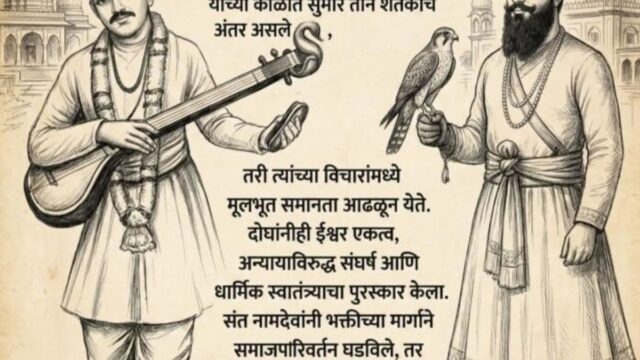 यांच्या काळात सुमारे तीन शतकांचे
अंतर असले ,
तरी त्यांच्या विचारांमध्ये
मूलभूत समानता आढळून येते.
दोघांनीही ईश्वर एकत्व,
अन्यायाविरुद्ध संघर्ष आणि
धार्मिक स्वातंत्र्याचा पुरस्कार केला.
संत नामदेवांनी भक्तीच्या मार्गाने
समाजपरिवर्तन घडविले, तर